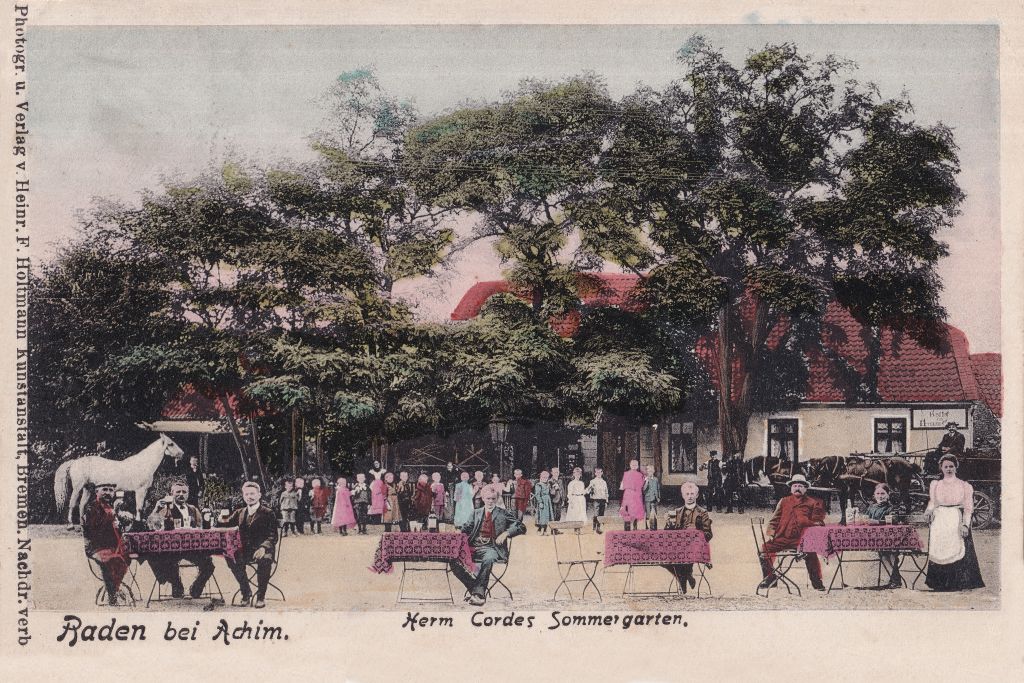 Photogr. u. Verlag v. Heinr. F. Holzmann Kunstanstalt, Bremen. Nachdr. verb
Baden bei Achim.
Herm Cordes Sommergarten.